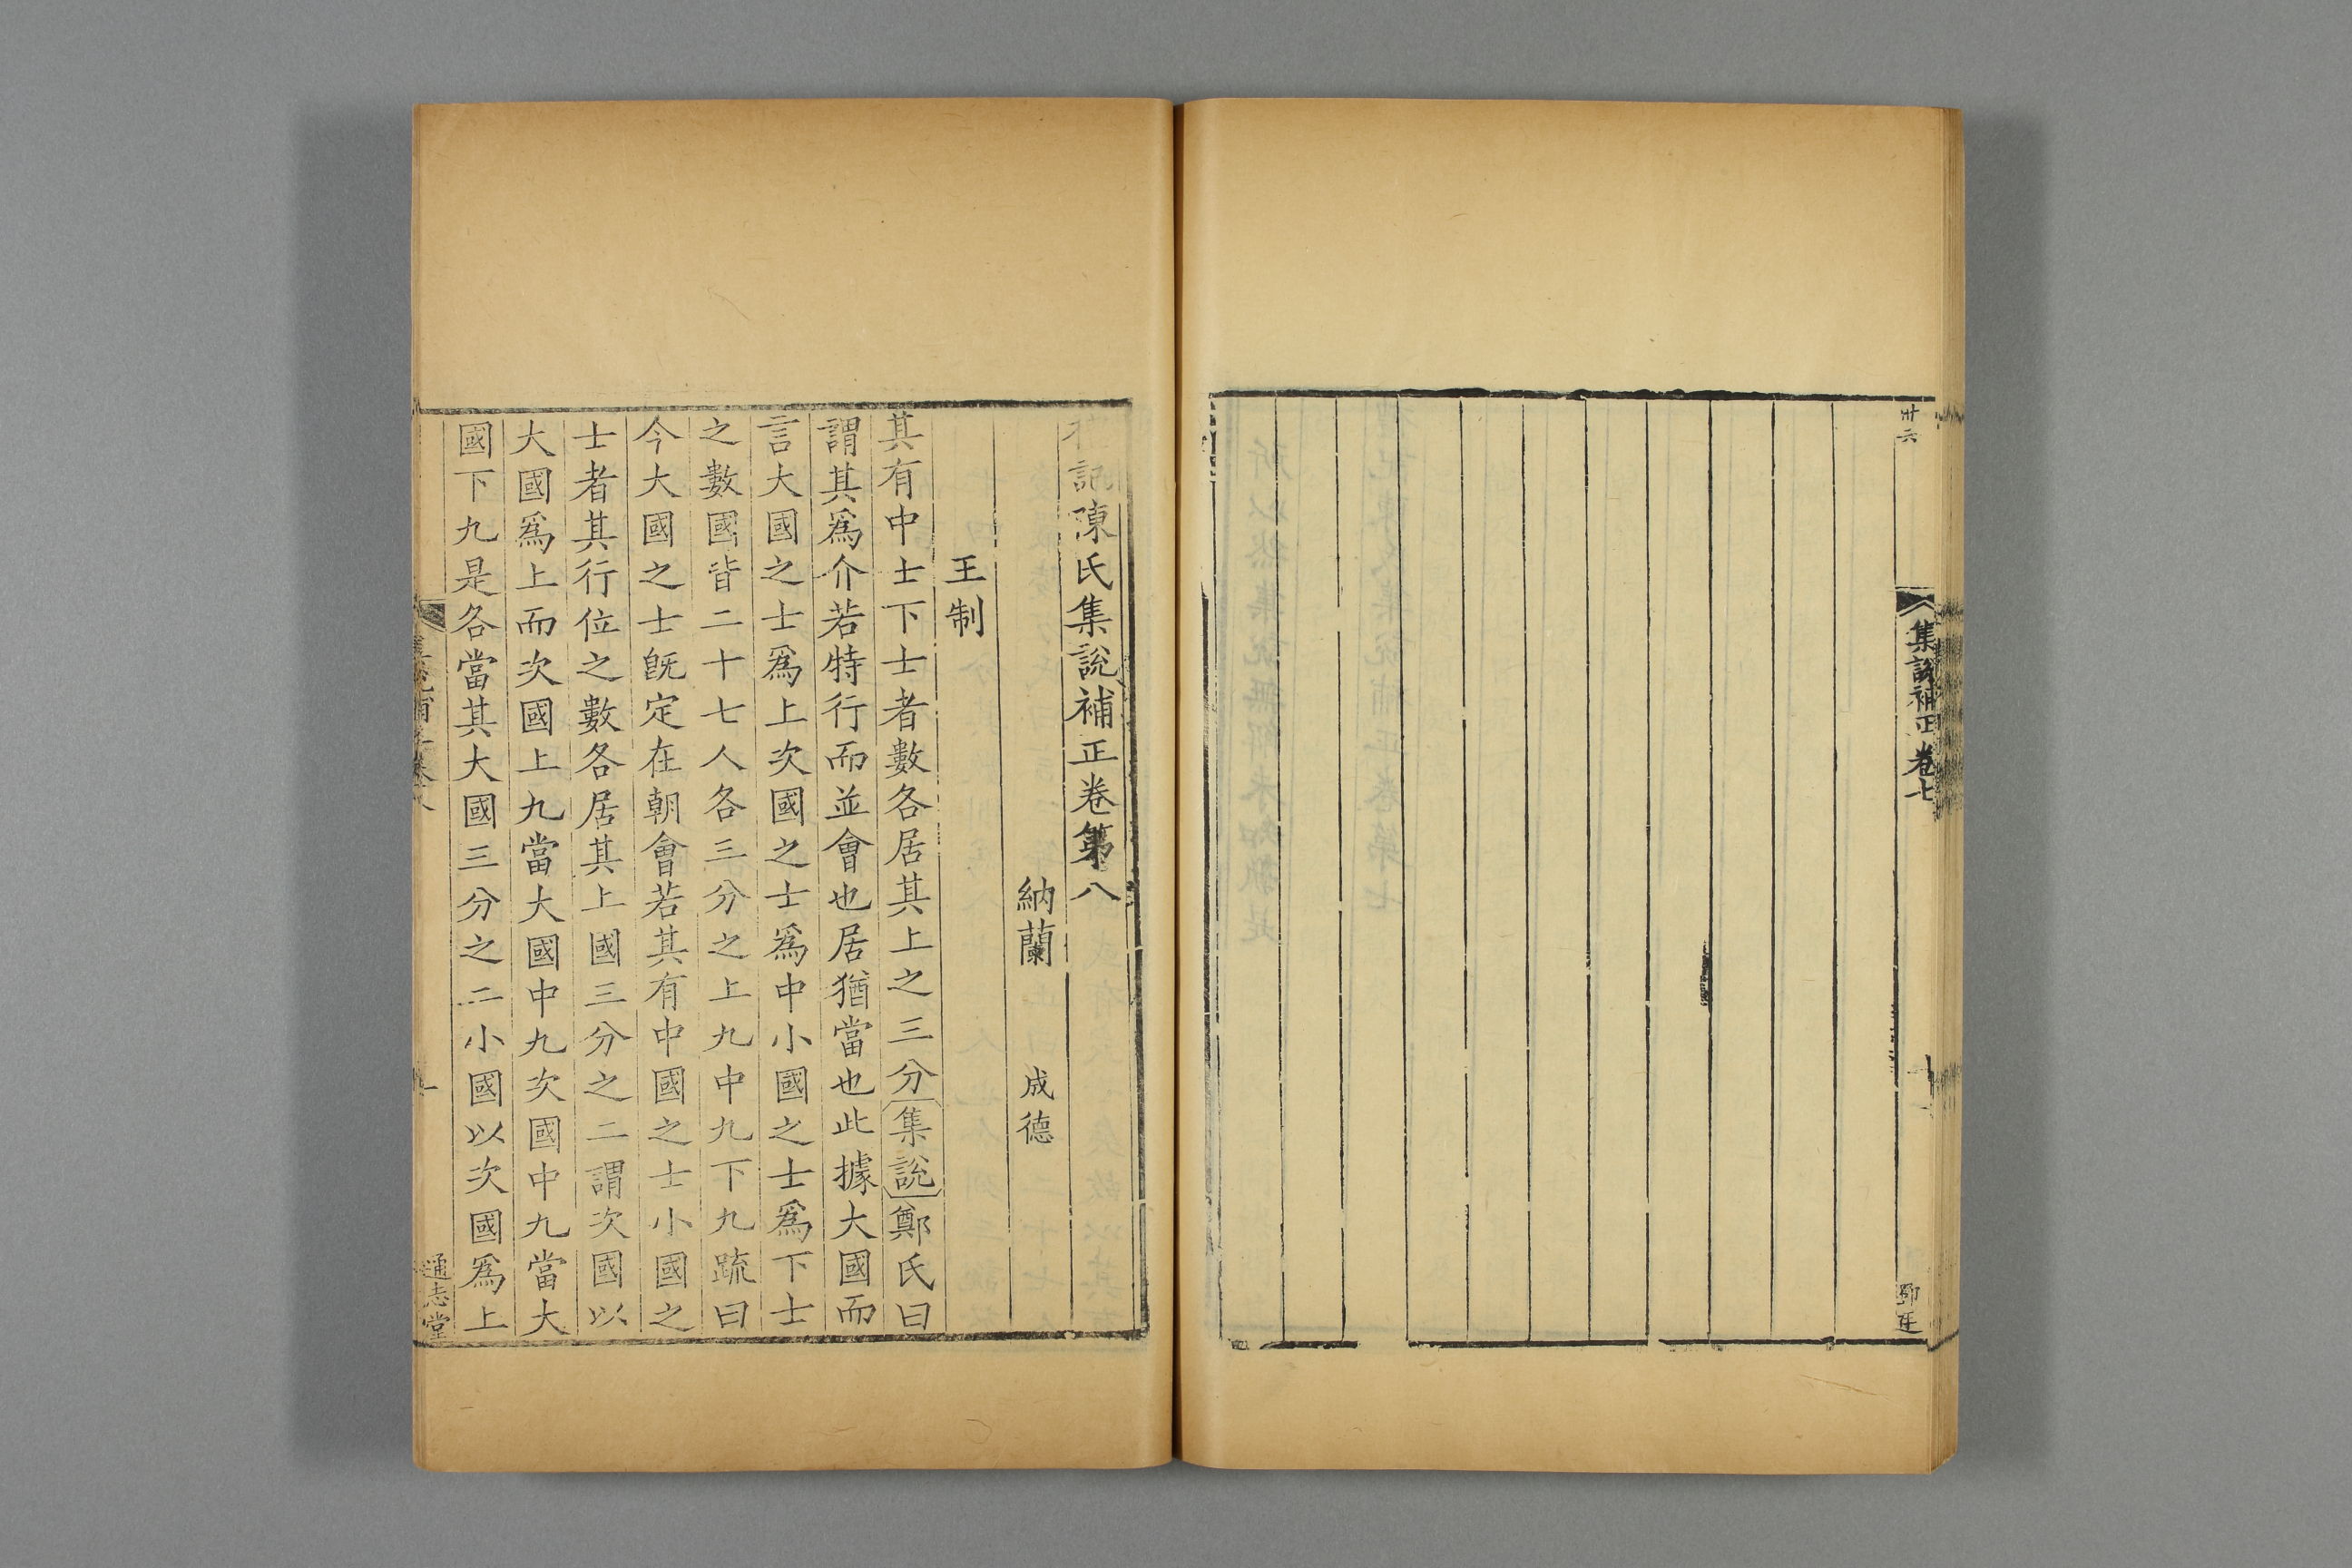 卅六
集說補正卷七
記陳氏集說補正卷第八
納蘭 成德
王制
其有中士下士者數各居其上之三分集說鄭氏曰
謂其爲介若特行而並會也居猶當也此據大國而
言大國之士爲上次國之士爲中小國之士爲下士
之數國皆二十七人各三分之上九中九下九疏曰
今大國之士旣定在朝會若其有中國之士小國之
士者其行位之數各居其上國三分之二謂次國以
大國爲上而次國上九當大國中九次國中九當大
國下九是各當其大國三分之二小國以次國爲上
通志堂